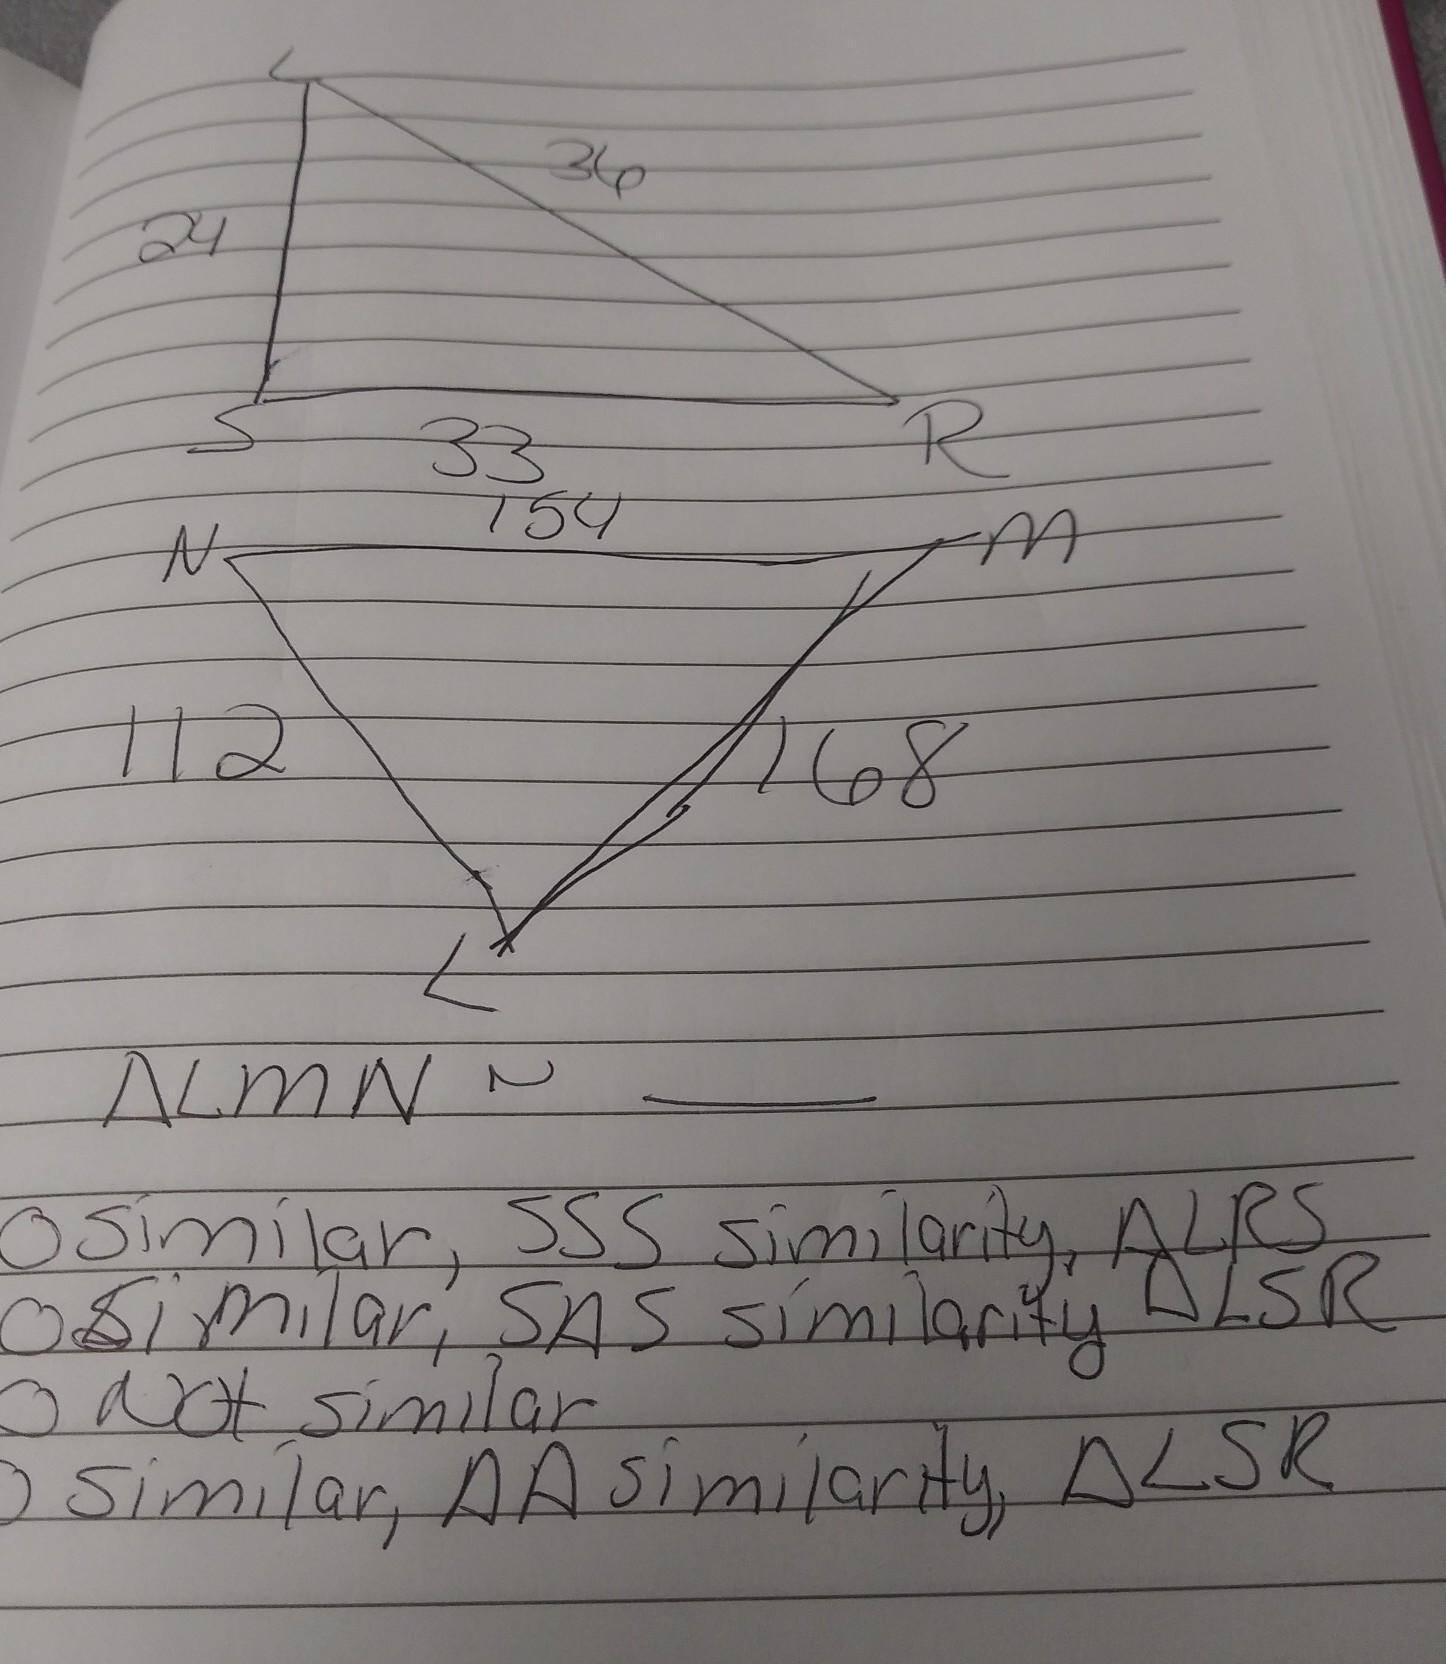 L
36
24
S
33
R
154
N
M
112
168
L
ΔLMN ~ ____
○ Similar, SSS similarity, ΔLRS
○ Similar, SAS similarity ΔLSR
○ Not similar
○ Similar, AA similarity, ΔLSR